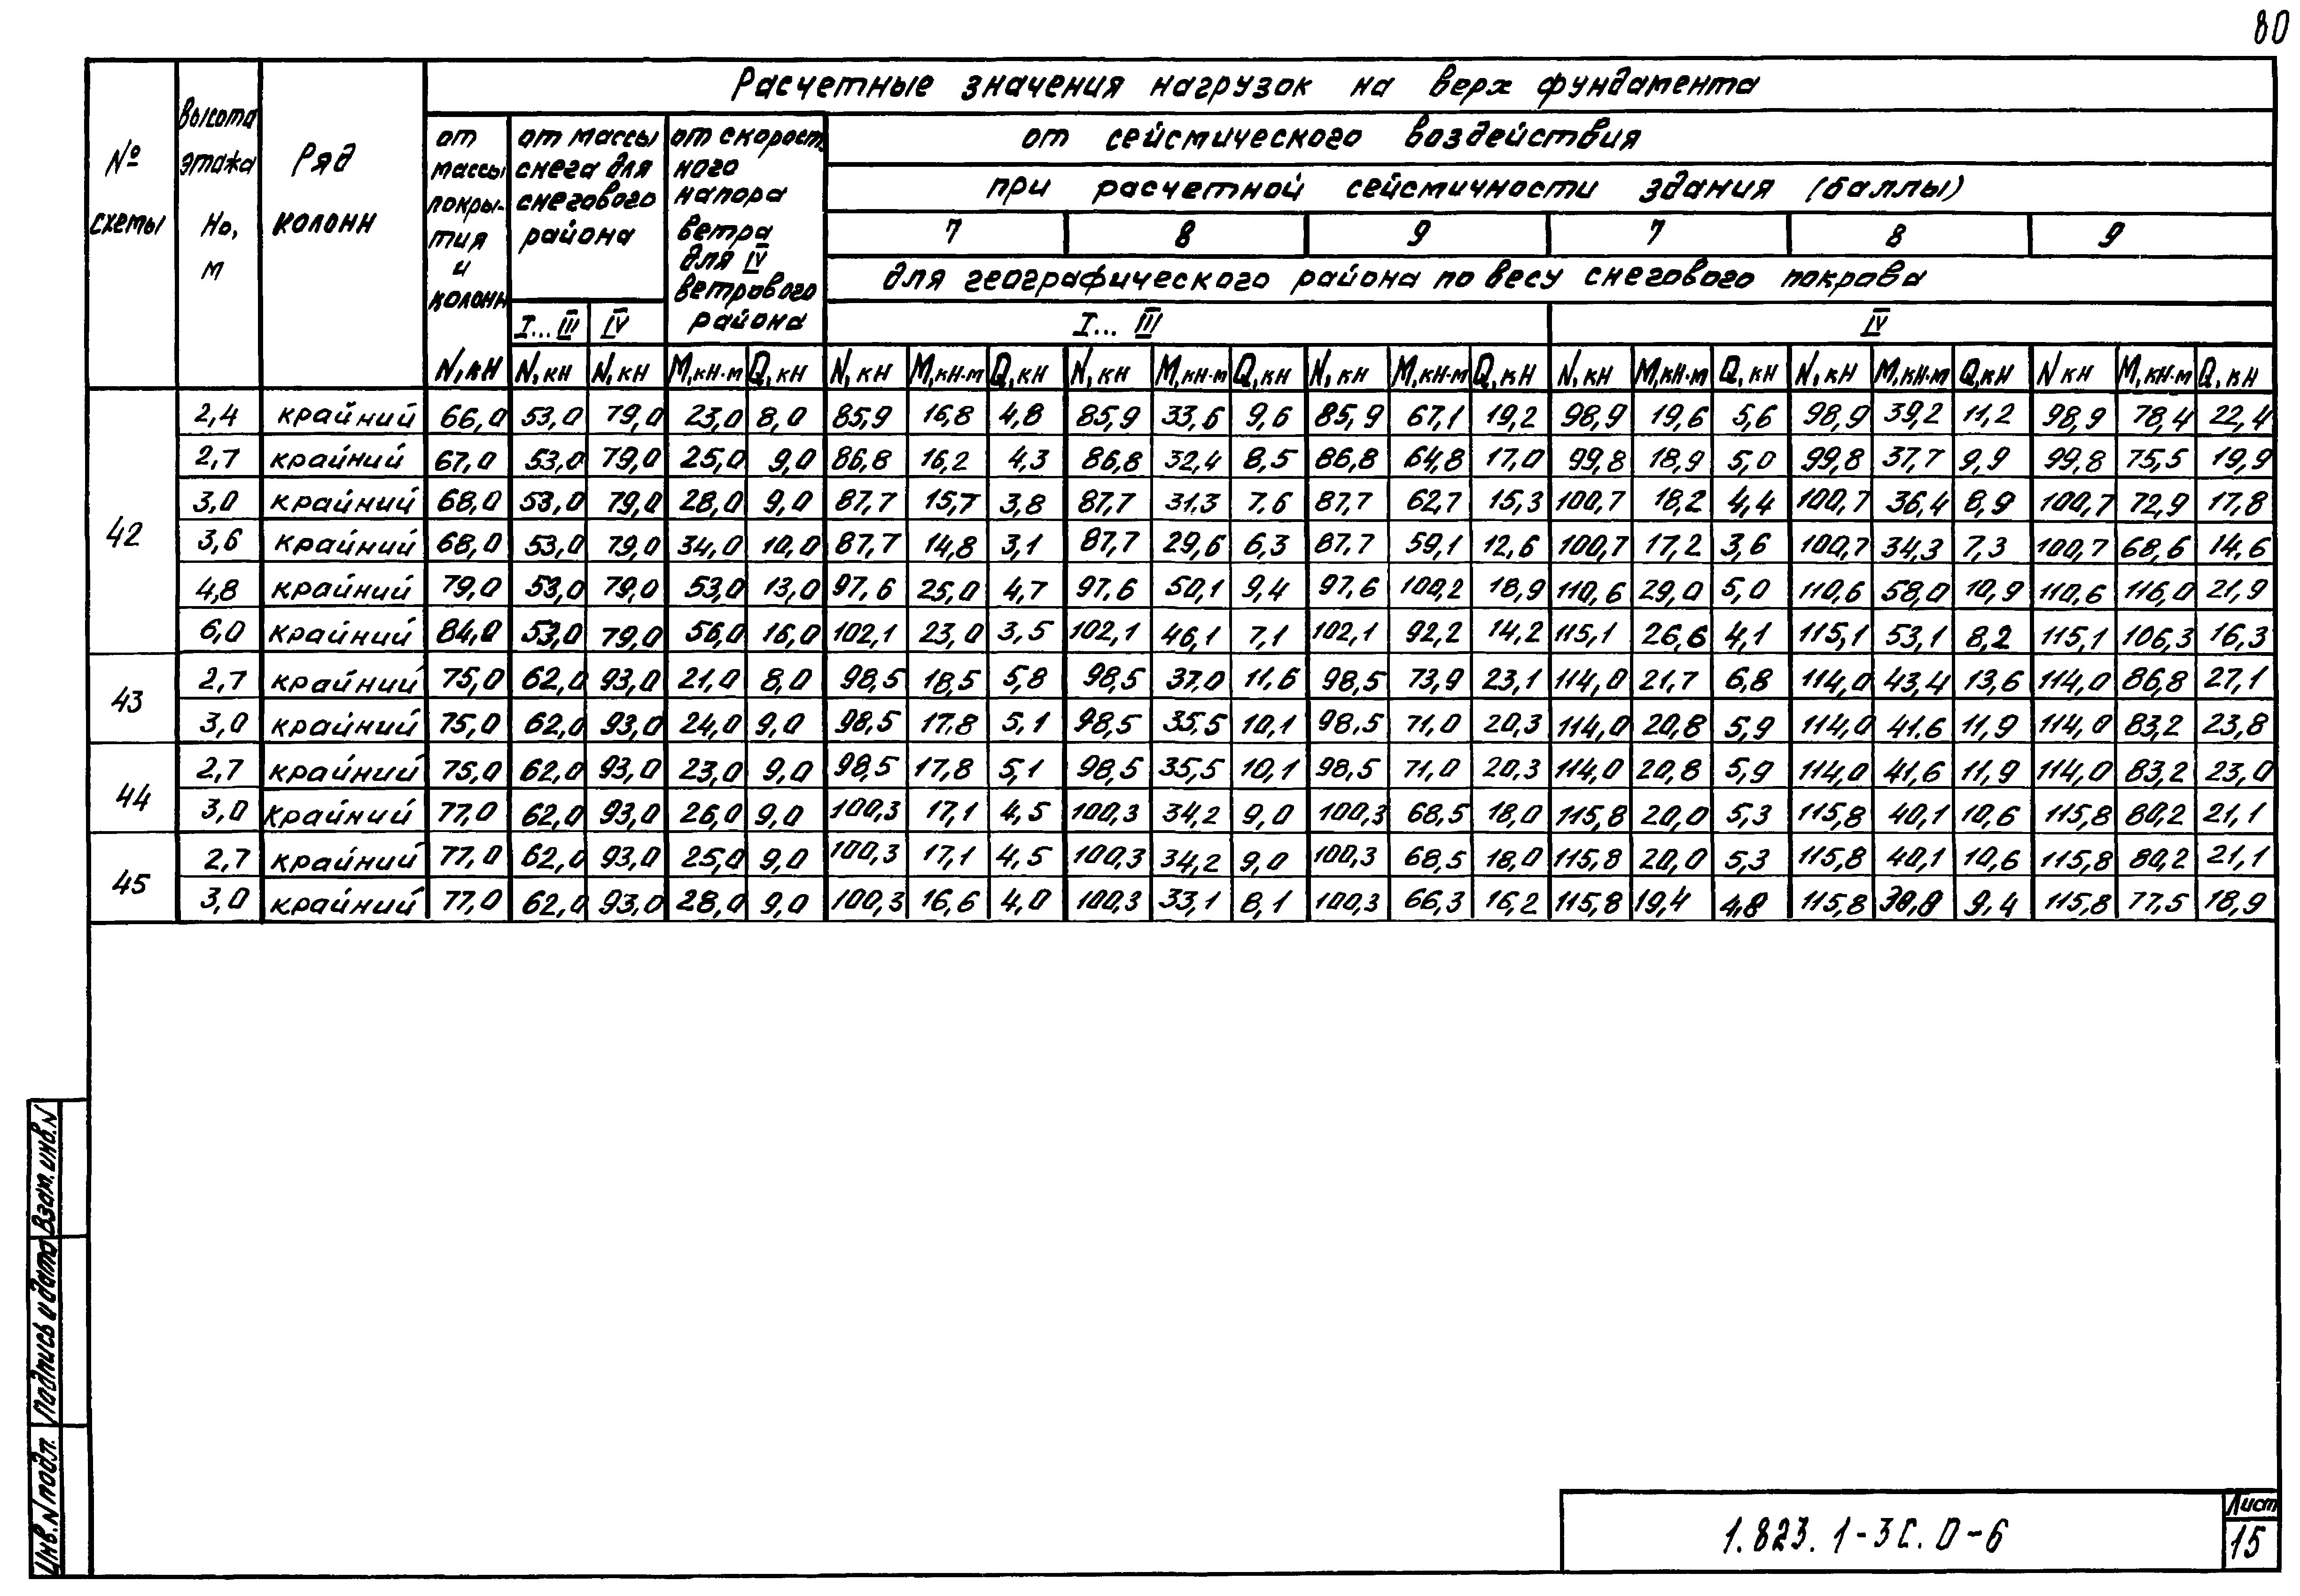 80
Расчетные значения нагрузок на верх фундамента
№ схемы
высота этажа Но, м
Ряд колонн
от массы покры-тия и колонн
от массы снега для снегового района
от скорост-ного напора ветра для IV ветрового района
от сейсмического воздействия
при расчетной сейсмичности здания (баллы)
7 8 9 7 8 9
для географического района по весу снегового покрова
I... III IV I... III IV
N, кН N, кН N, кН М, кН·м Q, кН N, кН М, кН·м Q, кН N, кН М, кН·м Q, кН N, кН М, кН·м Q, кН N, кН М, кН·м Q, кН N, кН М, кН·м Q, кН N кН М, кН·м Q, кН
42
2,4 крайний 66,0 53,0 79,0 23,0 8,0 85,9 16,8 4,8 85,9 33,6 9,6 85,9 67,1 19,2 98,9 19,6 5,6 98,9 39,2 11,2 98,9 78,4 22,4
2,7 крайний 67,0 53,0 79,0 25,0 9,0 86,8 16,2 4,3 86,8 32,4 8,5 86,8 64,8 17,0 99,8 18,9 5,0 99,8 37,7 9,9 99,8 75,5 19,9
3,0 крайний 68,0 53,0 79,0 28,0 9,0 87,7 15,7 3,8 87,7 31,3 7,6 87,7 62,7 15,3 100,7 18,2 4,4 100,7 36,4 8,9 100,7 72,9 17,8
3,6 крайний 68,0 53,0 79,0 34,0 10,0 87,7 14,8 3,1 87,7 29,6 6,3 87,7 59,1 12,6 100,7 17,2 3,6 100,7 34,3 7,3 100,7 68,6 14,6
4,8 крайний 79,0 53,0 79,0 53,0 13,0 97,6 25,0 4,7 97,6 50,1 9,4 97,6 100,2 18,9 110,6 29,0 5,0 110,6 58,0 10,9 110,6 116,0 21,9
6,0 крайний 84,0 53,0 79,0 56,0 16,0 102,1 23,0 3,5 102,1 46,1 7,1 102,1 92,2 14,2 115,1 26,6 4,1 115,1 53,1 8,2 115,1 106,3 16,3
43
2,7 крайний 75,0 62,0 93,0 21,0 8,0 98,5 18,5 5,8 98,5 37,0 11,6 98,5 73,9 23,1 114,0 21,7 6,8 114,0 43,4 13,6 114,0 86,8 27,1
3,0 крайний 75,0 62,0 93,0 24,0 9,0 98,5 17,8 5,1 98,5 35,5 10,1 98,5 71,0 20,3 114,0 20,8 5,9 114,0 41,6 11,9 114,0 83,2 23,8
44
2,7 крайний 75,0 62,0 93,0 23,0 9,0 98,5 17,8 5,1 98,5 35,5 10,1 98,5 71,0 20,3 114,0 20,8 5,9 114,0 41,6 11,9 114,0 83,2 23,0
3,0 крайний 77,0 62,0 93,0 26,0 9,0 100,3 17,1 4,5 100,3 34,2 9,0 100,3 68,5 18,0 115,8 20,0 5,3 115,8 40,1 10,6 115,8 80,2 21,1
45
2,7 крайний 77,0 62,0 93,0 25,0 9,0 100,3 17,1 4,5 100,3 34,2 9,0 100,3 68,5 18,0 115,8 20,0 5,3 115,8 40,1 10,6 115,8 80,2 21,1
3,0 крайний 77,0 62,0 93,0 28,0 9,0 100,3 16,6 4,0 100,3 33,1 8,1 100,3 66,3 16,2 115,8 19,4 4,8 115,8 38,8 9,4 115,8 77,5 18,9
Взам. инв. N
Подпись и дата
Инв. N подл.
1.823.1-3С.0-6
Лист
15